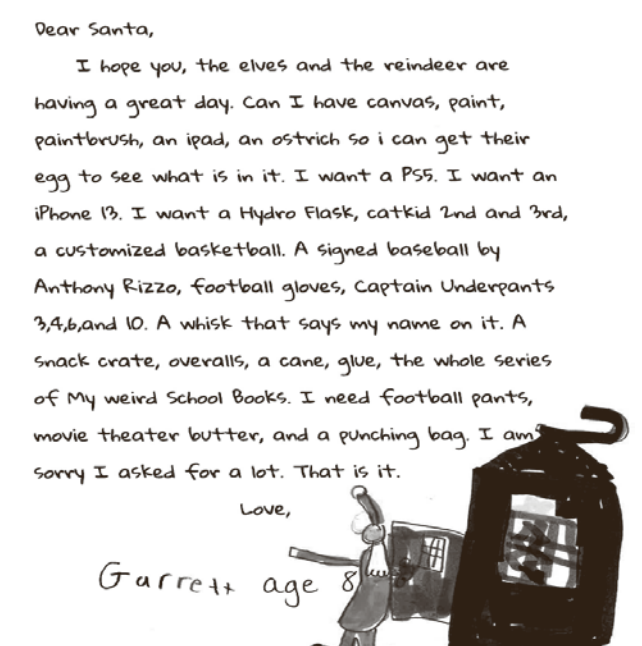 Dear Santa,
I hope you, the elves and the reindeer are
having a great day. Can I have canvas, paint,
paintbrush, an ipad, an ostrich so i can get their
egg to see what is in it. I want a PS5. I want an
iPhone 13. I want a Hydro Flask, catkid 2nd and 3rd,
a customized basketball. A signed baseball by
Anthony Rizzo, football gloves, Captain Underpants
3,4,6,and 10. A whisk that says my name on it. A
snack crate, overalls, a cane, glue, the whole series
of My weird School Books. I need football pants,
movie theater butter, and a punching bag. I am
sorry I asked for a lot. That is it.
Love,
Garrett age 8